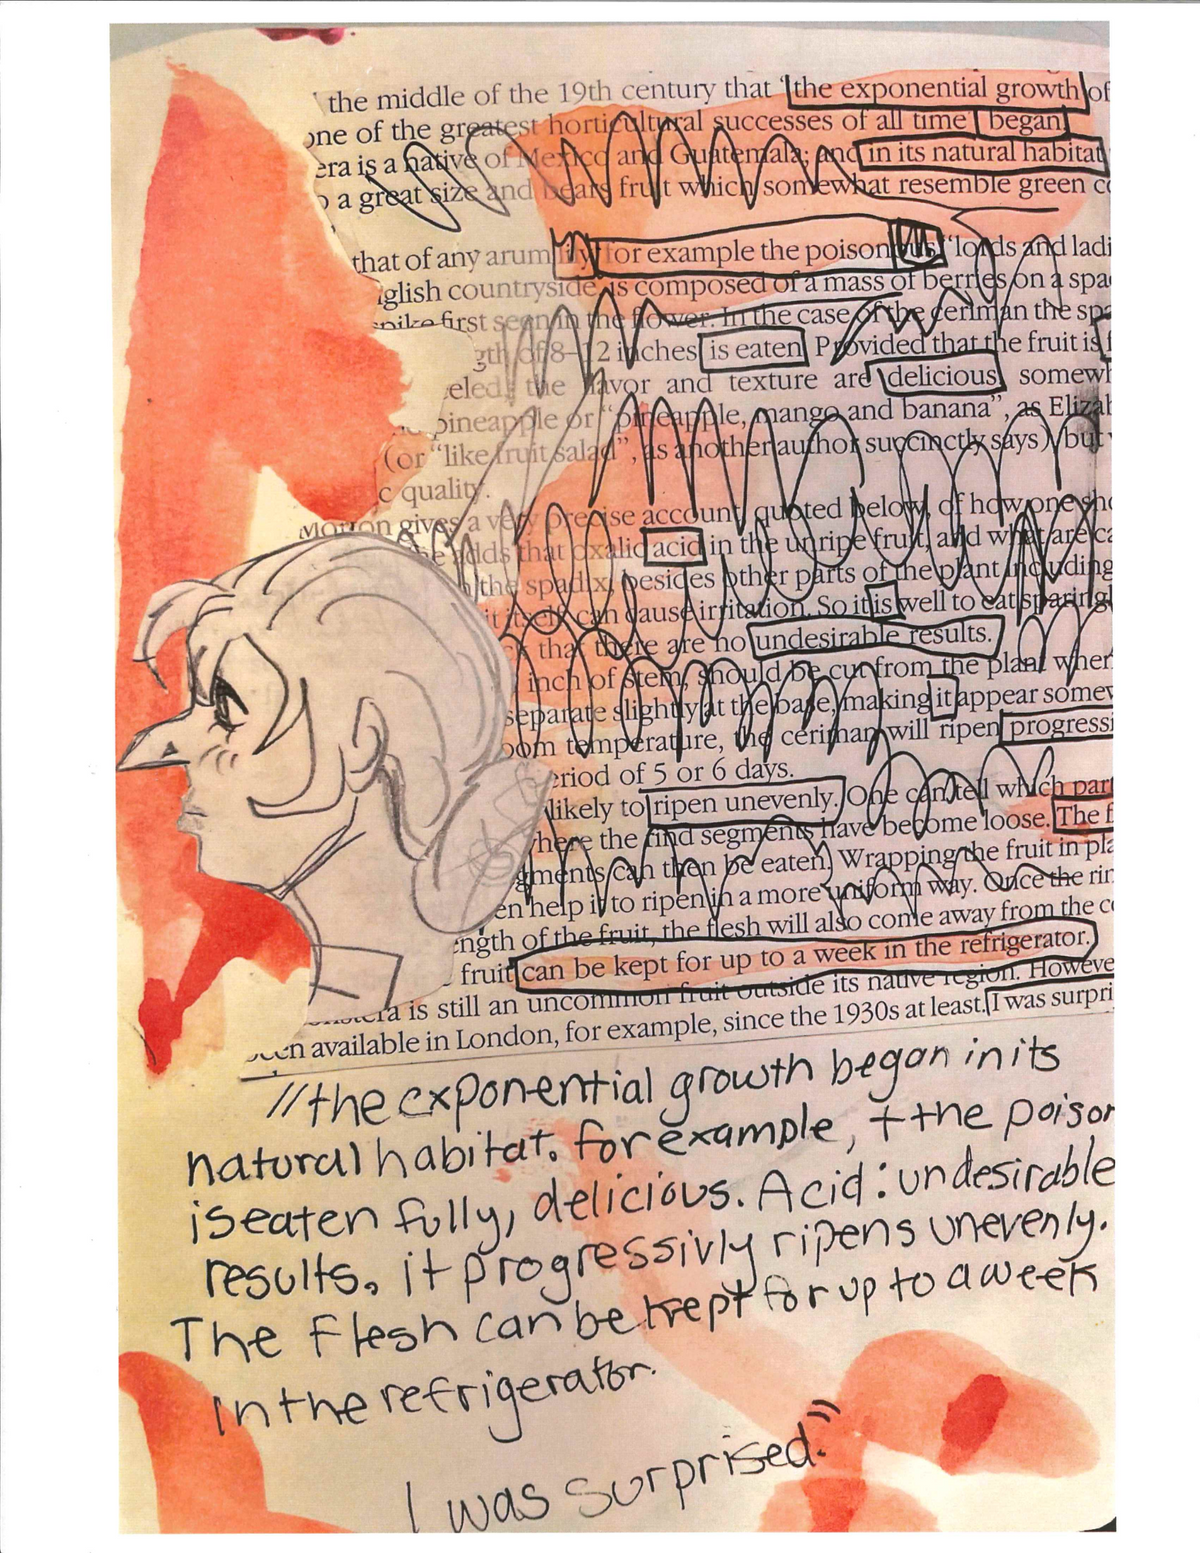 the middle of the 19th century that "the exponential growth of
one of the greatest horticultural successes of all time" began
era is a native of Mexico and Guatemala; and in its natural habitat
a great size and bears fruit which somewhat resemble green
that of any arum lily for example the poisonous "lords and ladi
glish countryside is composed of a mass of berries on a spa
spike first seen in the flower. In the case of the ceriman the sp
gth of 8–12 inches is eaten Provided that the fruit is f
eled, the flavor and texture are delicious somewh
pineapple or "pineapple, mango and banana", as Elizab
(or "like fruit salad", as another author succinctly says) but
c quality.
Morton gives a very precise account, quoted below, of how one sho
adds that oxalic acid in the unripe fruit, and what are ca
the spadix, besides other parts of the plant including
it itself, can cause irritation. So it is well to eat sparingl
that there are no undesirable results.
inch of stem, should be cut from the plant when
separate slightly at the base, making it appear somew
oom temperature, the ceriman will ripen progressi
eriod of 5 or 6 days.
likely to ripen unevenly. One can tell which part
here the rind segments have become loose. The f
gments can then be eaten. Wrapping the fruit in pla
en help it to ripen in a more uniform way. Once the rin
ength of the fruit, the flesh will also come away from the c
fruit can be kept for up to a week in the refrigerator.
is still an uncommon fruit outside its native region. Howeve
een available in London, for example, since the 1930s at least. I was surpri
"the exponential growth began in its
natural habitat. for example, + the poison
is eaten fully, delicious. Acid: undesirable
results. it progressivly ripens unevenly.
The flesh can be kept for up to a week
in the refrigerator.
I was surprised."